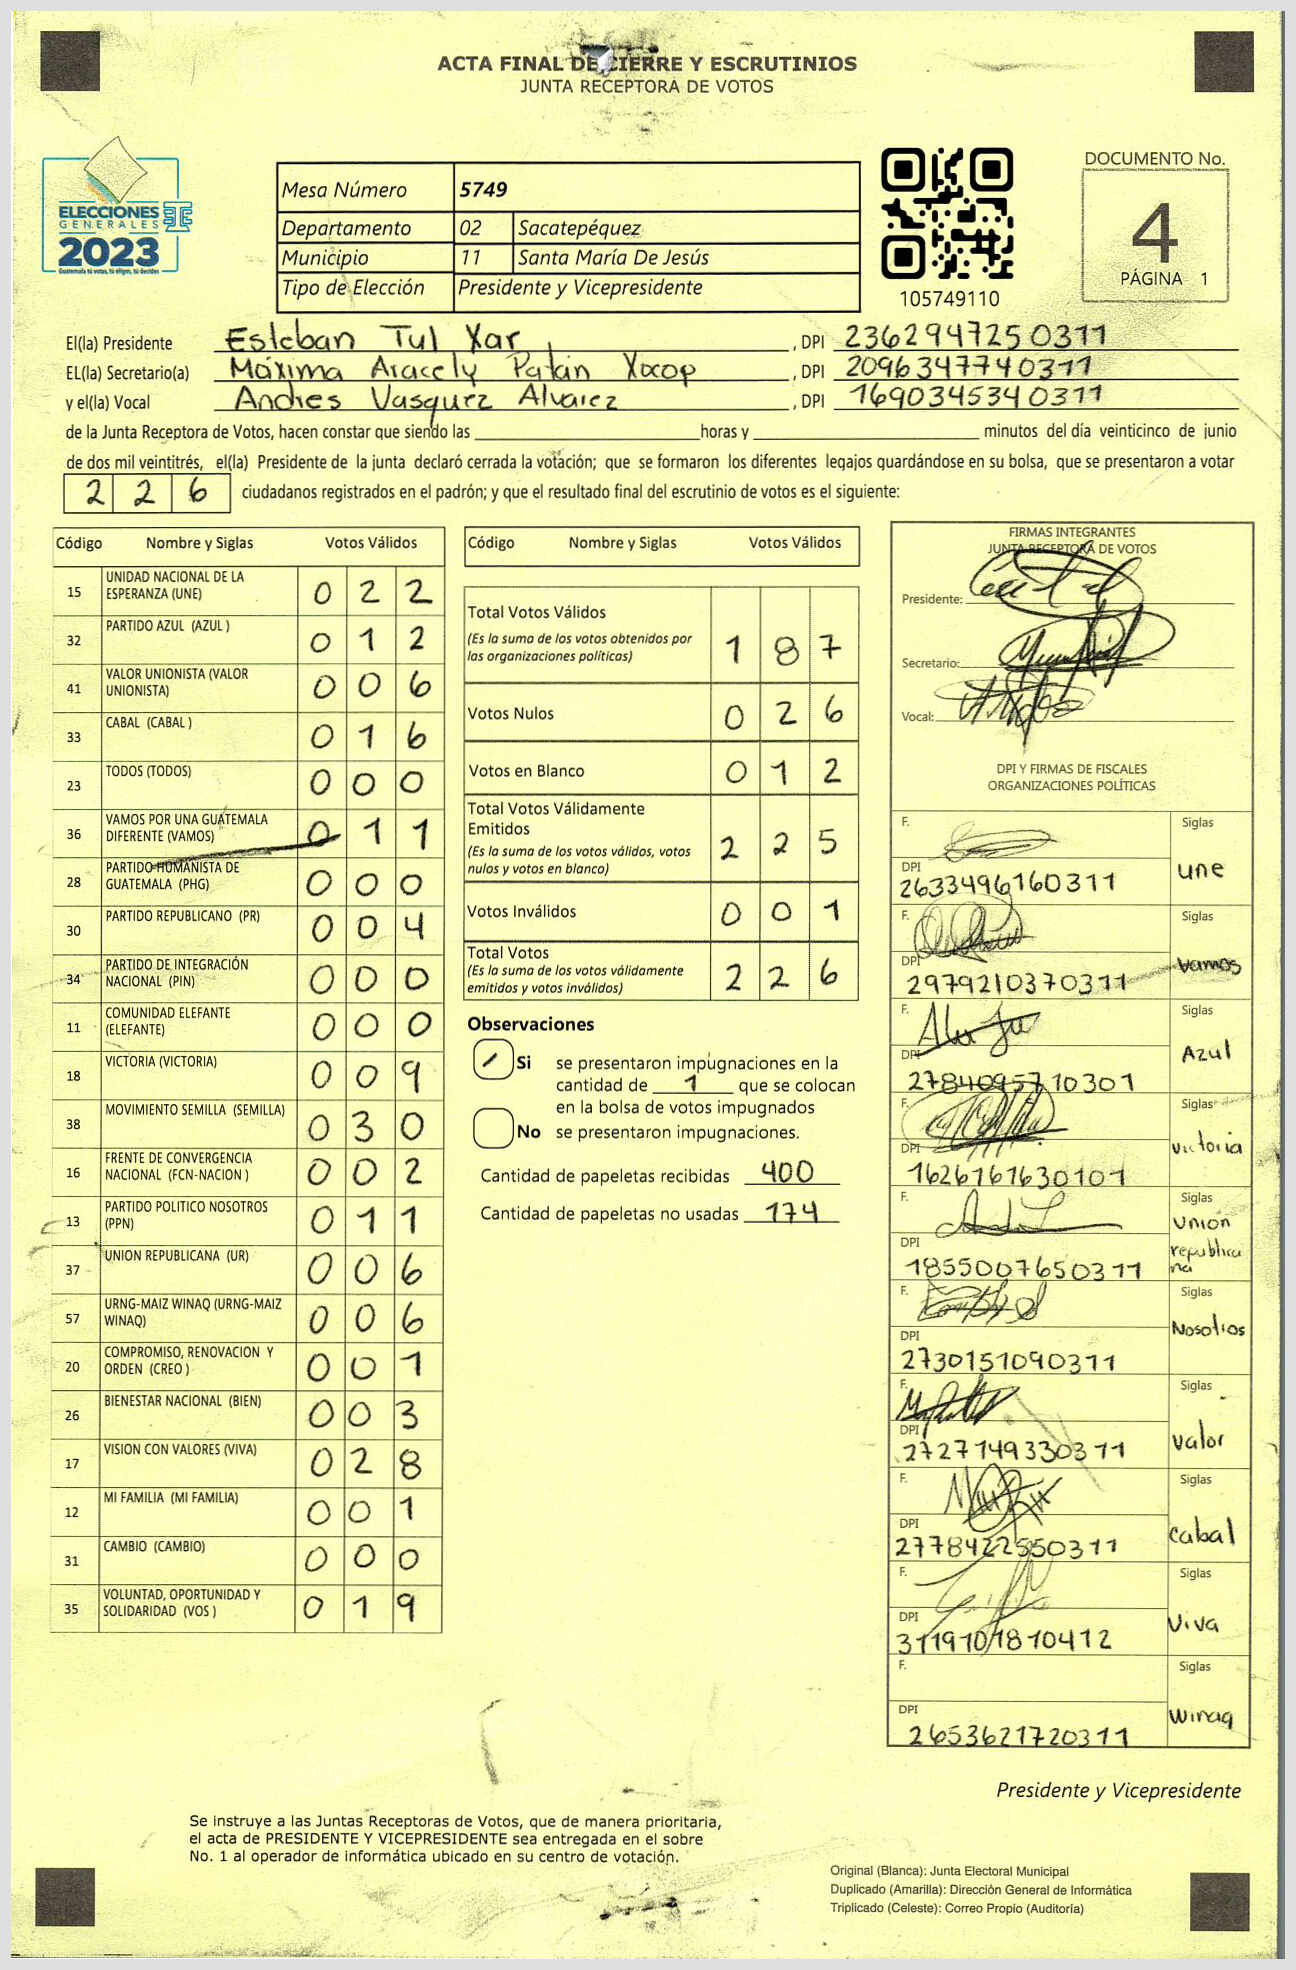 ACTA FINAL DE CIERRE Y ESCRUTINIOS
JUNTA RECEPTORA DE VOTOS
ELECCIONES
GENERALES
2023
Guatemala tú votas, tú eliges, tú decides
Mesa Número 5749
Departamento 02 Sacatepéquez
Municipio 11 Santa María De Jesús
Tipo de Elección Presidente y Vicepresidente
105749110
DOCUMENTO No.
4
PÁGINA 1
El(la) Presidente Esteban Tul Xar, DPI 2362947250311
EL(la) Secretario(a) Máxima Aracely Patán Xocop, DPI 2096347740311
y el(la) Vocal Andres Vasquez Alvarez, DPI 1690345340311
de la Junta Receptora de Votos, hacen constar que siendo las horas y minutos del día veinticinco de junio
de dos mil veintitrés, el(la) Presidente de la junta declaró cerrada la votación; que se formaron los diferentes legajos guardándose en su bolsa, que se presentaron a votar
226 ciudadanos registrados en el padrón; y que el resultado final del escrutinio de votos es el siguiente:
Código Nombre y Siglas Votos Válidos
15 UNIDAD NACIONAL DE LA ESPERANZA (UNE) 022
32 PARTIDO AZUL (AZUL ) 012
41 VALOR UNIONISTA (VALOR UNIONISTA) 006
33 CABAL (CABAL ) 016
23 TODOS (TODOS) 000
36 VAMOS POR UNA GUATEMALA DIFERENTE (VAMOS) 011
28 PARTIDO HUMANISTA DE GUATEMALA (PHG) 000
30 PARTIDO REPUBLICANO (PR) 004
34 PARTIDO DE INTEGRACIÓN NACIONAL (PIN) 000
11 COMUNIDAD ELEFANTE (ELEFANTE) 000
18 VICTORIA (VICTORIA) 009
38 MOVIMIENTO SEMILLA (SEMILLA) 030
16 FRENTE DE CONVERGENCIA NACIONAL (FCN-NACION ) 002
13 PARTIDO POLITICO NOSOTROS (PPN) 011
37 UNION REPUBLICANA (UR) 006
57 URNG-MAIZ WINAQ (URNG-MAIZ WINAQ) 006
20 COMPROMISO, RENOVACION Y ORDEN (CREO ) 001
26 BIENESTAR NACIONAL (BIEN) 003
17 VISION CON VALORES (VIVA) 028
12 MI FAMILIA (MI FAMILIA) 001
31 CAMBIO (CAMBIO) 000
35 VOLUNTAD, OPORTUNIDAD Y SOLIDARIDAD (VOS ) 019
Código Nombre y Siglas Votos Válidos
Total Votos Válidos 187
(Es la suma de los votos obtenidos por
las organizaciones políticas)
Votos Nulos 026
Votos en Blanco 012
Total Votos Válidamente
Emitidos 225
(Es la suma de los votos válidos, votos
nulos y votos en blanco)
Votos Inválidos 001
Total Votos 226
(Es la suma de los votos válidamente
emitidos y votos inválidos)
Observaciones
Si se presentaron impugnaciones en la
cantidad de 1 que se colocan
en la bolsa de votos impugnados
No se presentaron impugnaciones.
Cantidad de papeletas recibidas 400
Cantidad de papeletas no usadas 174
FIRMAS INTEGRANTES
JUNTA RECEPTORA DE VOTOS
Presidente:
Secretario:
Vocal:
DPI Y FIRMAS DE FISCALES
ORGANIZACIONES POLÍTICAS
F. Siglas
DPI 2633496160311 une
F. Siglas
DPI 2979210370311 vamos
F. Siglas
DPI 2784095710301 Azul
F. Siglas
DPI 1626161630101 victoria
F. Siglas
DPI 1855007650311 union republica na
F. Siglas
DPI 2730151090311 Nosotros
F. Siglas
DPI 2727149330311 valor
F. Siglas
DPI 2778422550311 cabal
F. Siglas
DPI 3119101810412 Viva
F. Siglas
DPI 2653621720311 winaq
Presidente y Vicepresidente
Se instruye a las Juntas Receptoras de Votos, que de manera prioritaria,
el acta de PRESIDENTE Y VICEPRESIDENTE sea entregada en el sobre
No. 1 al operador de informática ubicado en su centro de votación.
Original (Blanca): Junta Electoral Municipal
Duplicado (Amarilla): Dirección General de Informática
Triplicado (Celeste): Correo Propio (Auditoría)